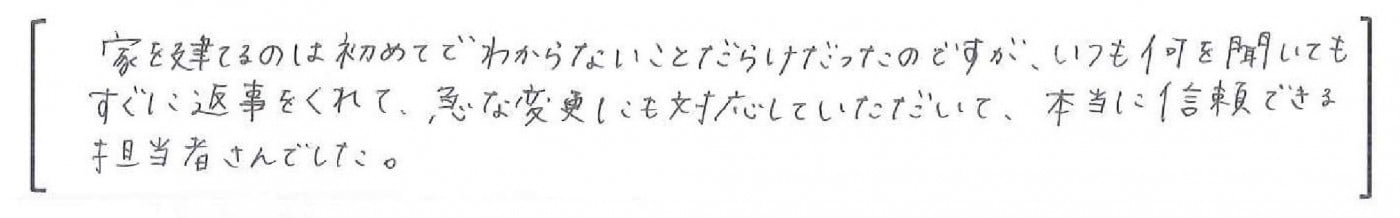 家を建てるのは初めてでわからないことだらけだったのですが、いつも何を聞いても
すぐに返事をくれて、急な変更にも対応していただいて、本当に信頼できる
担当者さんでした。